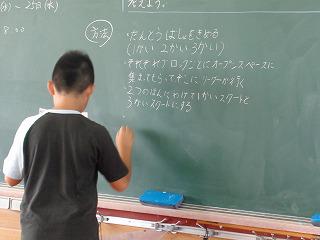 (水)～25日(水)
8:00
伝えよう。
方法
・たんとうばしょをきめる
(1かい 2かい 3かい)
・それぞれブロックごとにオープンスペースに
集まってもらってそこにリーダーが行く
・2つのはんにわけて1かいスタートと
3かいスタートにする
・